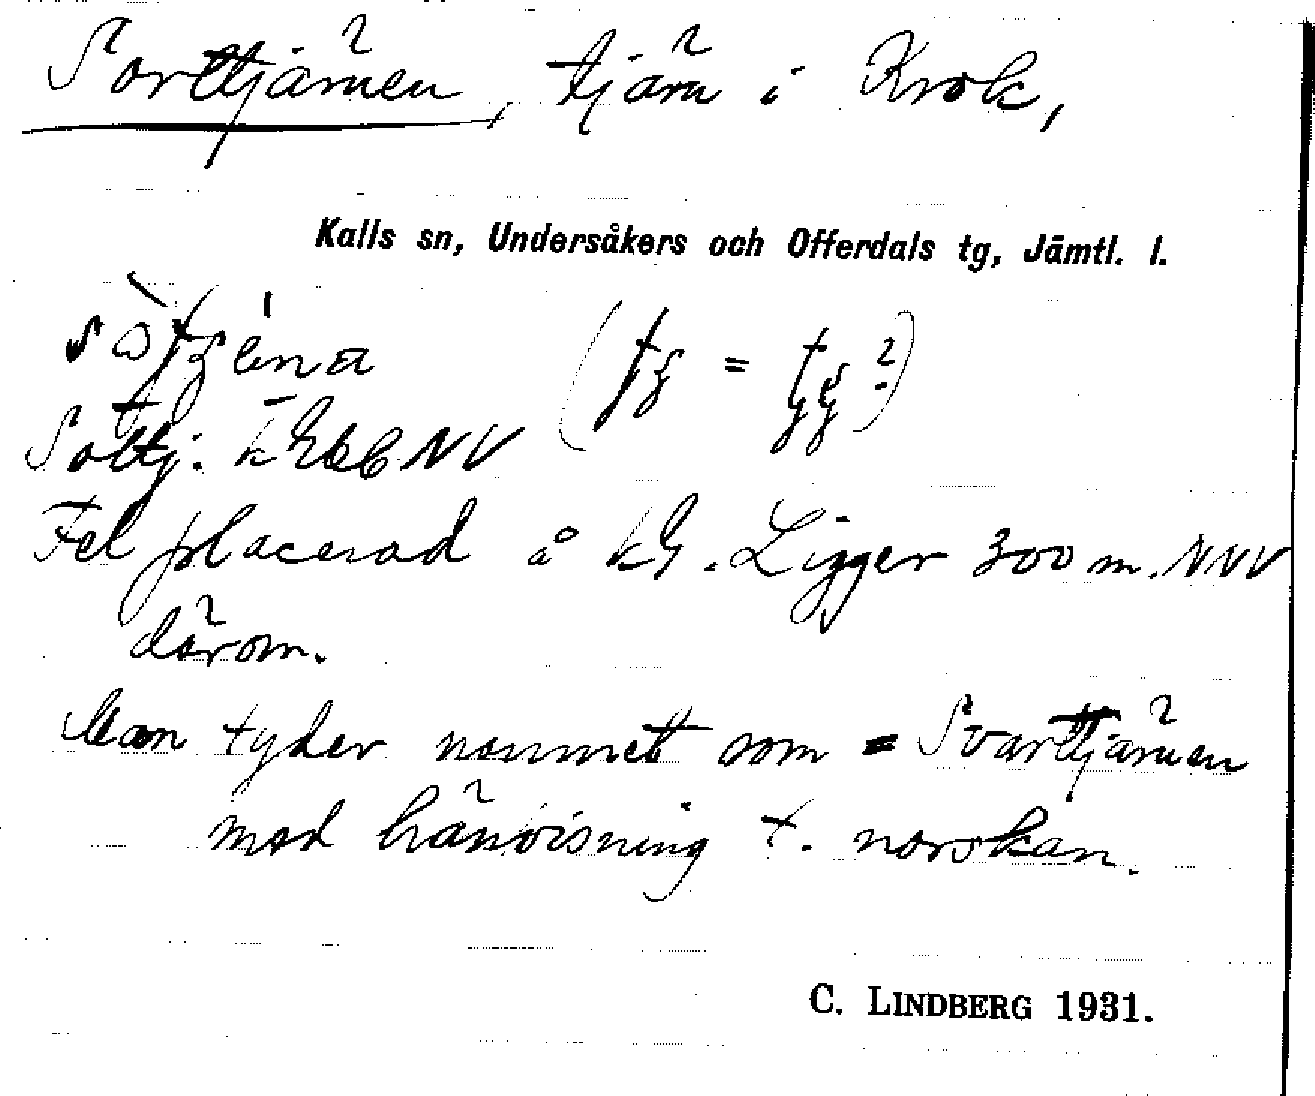 Sorttjärnen, tjärn i Krok,
Kalls sn, Undersåkers och Offerdals tg, Jämtl. l.
Soltj.
Fel placerad å kG. Ligger 300 m. NNV
därom.
Man tyder namnet som = Svarttjärnen
med hänvisning t. norskan.
C. LINDBERG 1931.